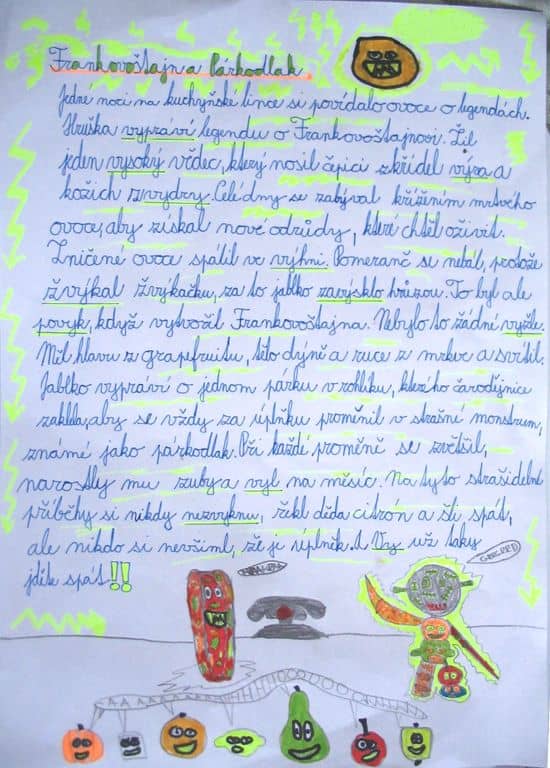 Frankovoštajn a Párkodlak
Jedné noci na kuchyňské lince si povídalo ovoce o legendách.
Hruška vypráví legendu o Frankovoštajnovi. Žil
jeden vysoký vědec, který nosil čepici z křídel výra a
kožich z vydry. Celé dny se zabýval křížením mrtvého
ovoce, aby získal nové odrůdy, které chtěl oživit.
Zničené ovoce spálil ve výhni. Pomeranč se nebál, protože
žvýkal žvýkačku, za to jablko zavýsklo hrůzou. To byl ale
povyk, když vytvořil Frankovoštajna. Nebylo to žádné vyžle.
Měl hlavu z grapefruitu, tělo dýně a ruce z mrkve a svítil.
Jablko vypráví o jednom párku v rohlíku, kterého čarodějnice
zaklela, aby se vždy za úplňku proměnil v strašné monstrum,
známé jako párkodlak. Při každé proměně se zvětšil,
narostly mu zuby a vyl na měsíc. Na tyto strašidelné
příběhy si nikdy nezvyknu, řekl děda citrón a šli spát,
ale nikdo si nevšiml, že je úplněk. A Vy už taky
jděte spát!!